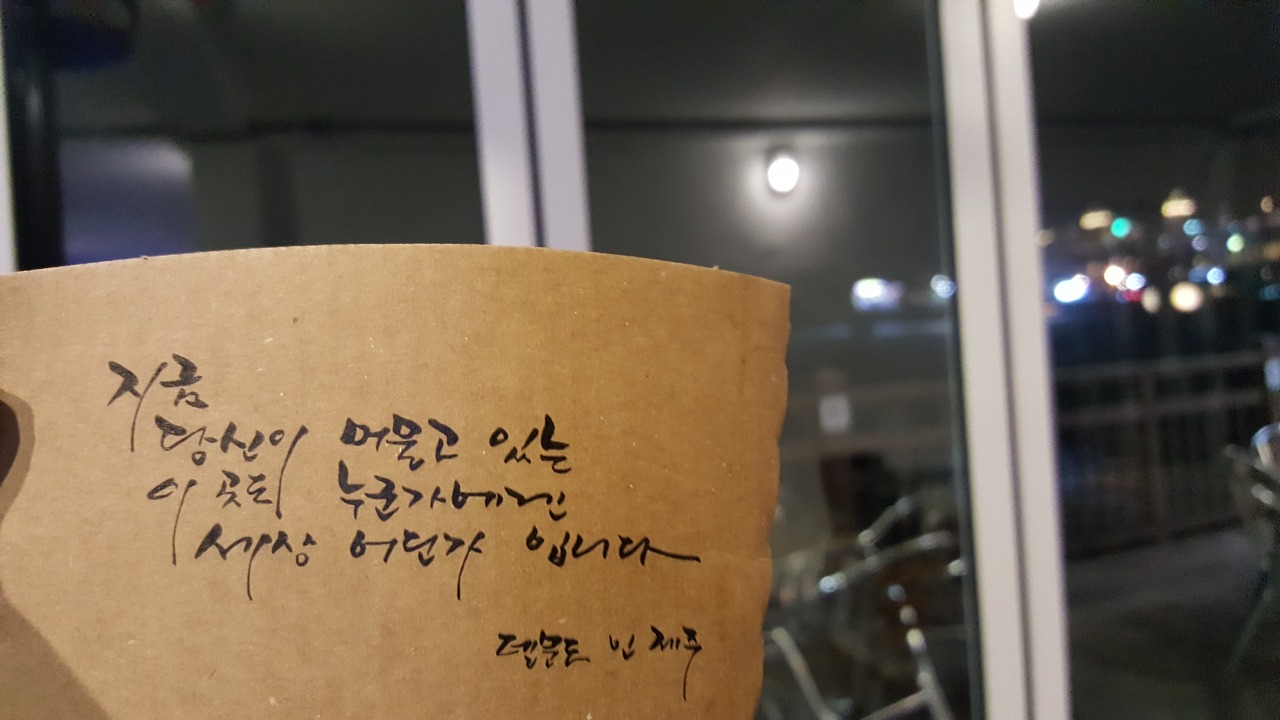 지금
당신이 머물고 있는
이 곳도 누군가에겐
세상 어딘가 입니다
델문도 인 제주